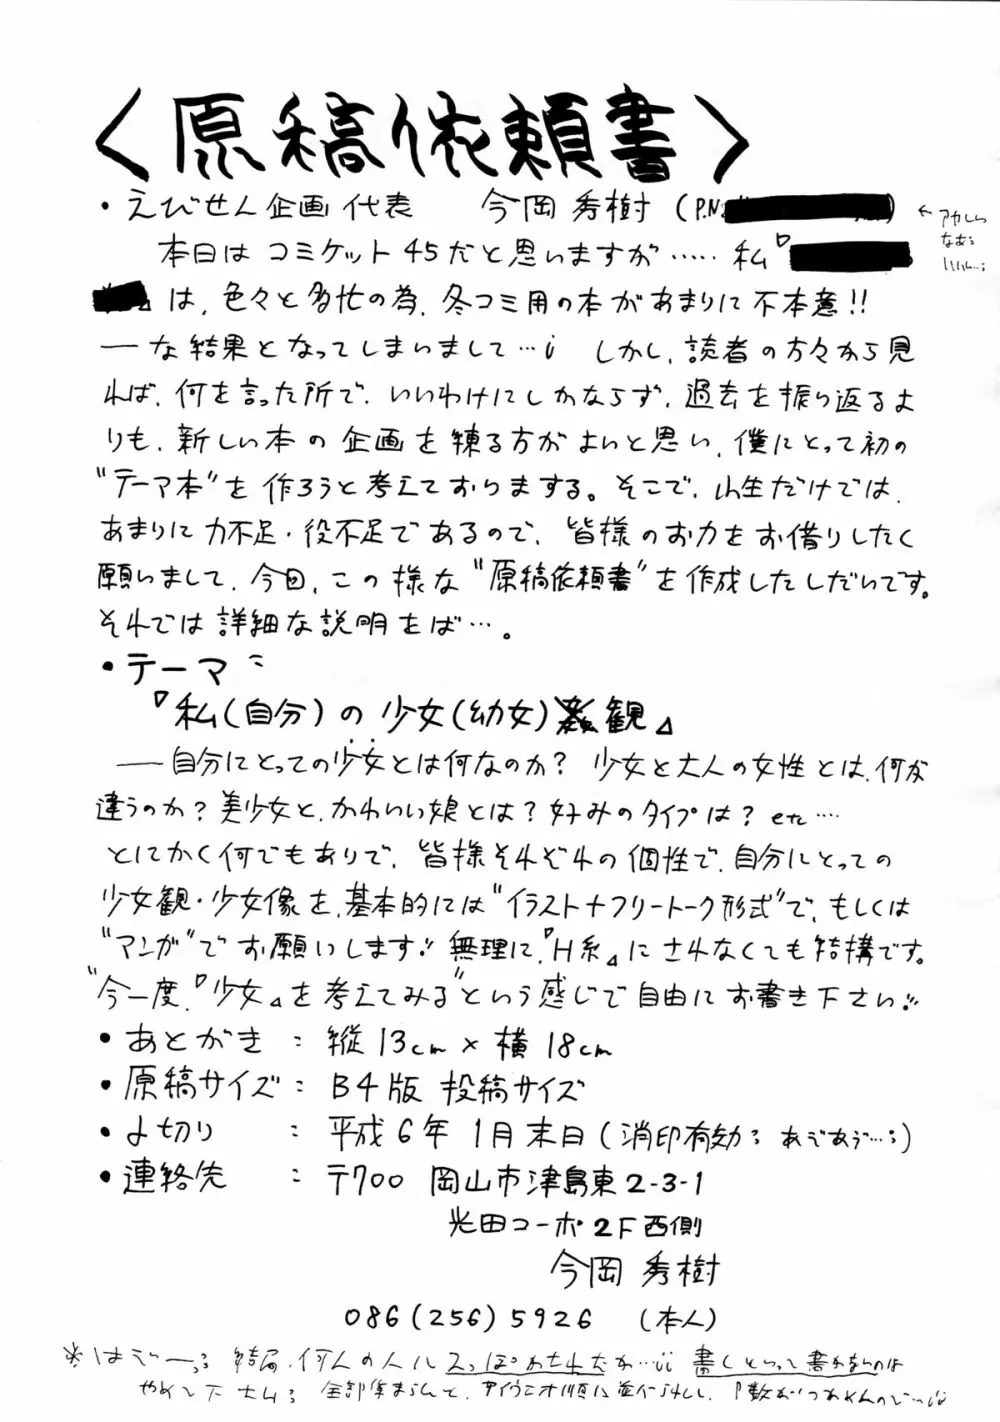 〈原稿依頼書〉
・えびせん企画代表　今岡秀樹(P.N.
本日はコミケット45だと思いますが……私『
は、色々と多忙の為、冬コミ用の本があまりに不本意!!
―な結果となってしまいまして…;　しかし、読者の方々から見
れば、何を言った所で、いいわけにしかならず、過去を振り返るよ
りも、新しい本の企画を練る方がよいと思い、僕にとって初の
"テーマ本"を作ろうと考えておりまする。そこで、小生だけでは、
あまりに力不足・役不足であるので、皆様のお力をお借りしたく
願いまして、今回、この様な"原稿依頼書"を作成したしだいです。
それでは詳細な説明をば…。
・テーマ:
『私(自分)の少女(幼女)観』
――自分にとっての少女とは何なのか?　少女と大人の女性とは、何が
違うのか?美少女と、かわいい娘とは?好みのタイプは?etc……
とにかく何でもありで、皆様それぞれの個性で、自分にとっての
少女観・少女像を、基本的には"イラスト+フリートーク形式"で、もしくは
"マンガ"でお願いします!!無理に、『H系』にされなくても結構です。
"今一度、『少女』を考えてみる"という感じで自由にお書き下さい!!
・あとがき : 縦13cm×横18cm
・原稿サイズ : B4版 投稿サイズ
・〆切り : 平成6年1月末日(消印有効; あぞあぞ…;)
・連絡先 : 〒700 岡山市津島東2-3-1
光田コーポ2F西側
今岡 秀樹
086(256)5926 (本人)
結局、何人の人にすっぽかされたか…;; 書くといって書かないのは
やめて下さい;